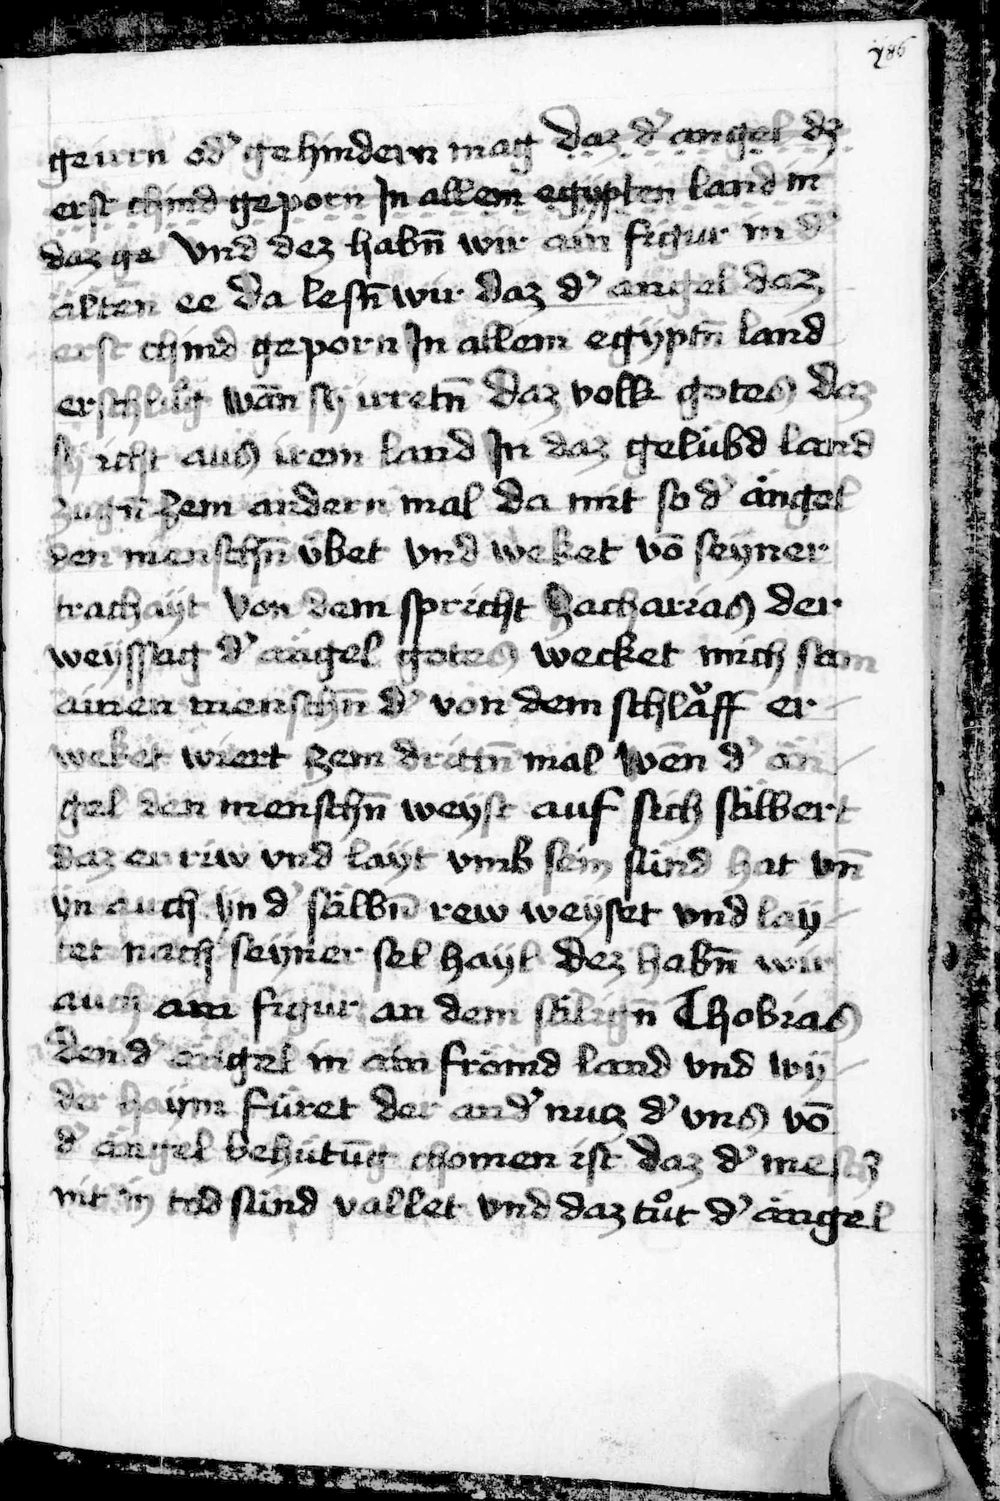 186
geirrn od' gehindern mag Daz d' angel dz
erst chind geporn In allem egypten land in
daz ge Vnd dez habn̄ wir ain figur in d'
alten ee Da lesn̄ wir daz d' angel daz
erst chind geporn In allem egyptn̄ land
erschlug wān sy irretn̄ Daz volk gotes Daz
sy icht aus irem land In daz gelübd land
zugn̄ Zem andern mal Da mit so d' ängel
den menschn̄ übet vnd weket vō seyner
trachayt Von dem spricht Zacharias der
weyssag d' ängel gotes wecket mich sam
ainen menschn̄ d' von dem schlaff er
weket wiert Zem drittn̄ mal Wēn d' än
gel den menschn̄ weyst auf sich sälbert
daz er riw vnd layt vmb sein sünd hat vn̄
yn auch yn d' sälbn̄ rew weyset vnd lay
tet nach seyner sel hayl Dez habn̄ wir
auch ain figur an dem sälign̄ Thobias
Den d' ängel in ain frömd land vnd wy
der haym füret Der and' nucz d' vns vō
d' ängel behütūg chomen ist Daz d' mesch
nit in tod sünd vallet Vnd daz tůt d' ängel